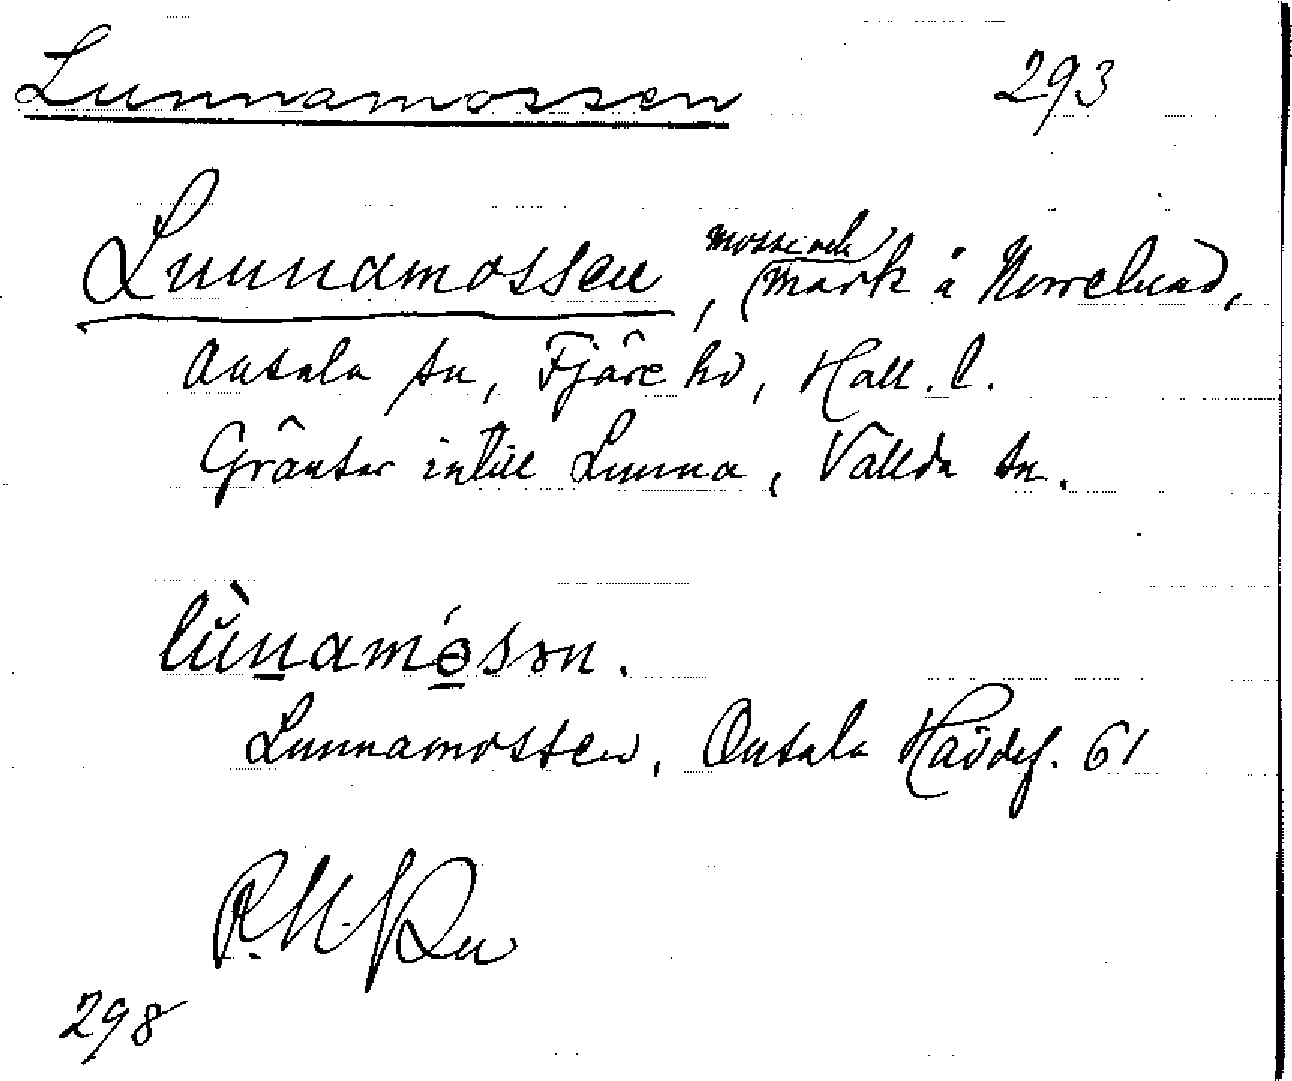 Lunnamossen 293
Lunnamossen, mosse och mark å Norrelund,
Onsala sn, Fjäre hd, Hall. l.
Gränsar intill Lunna, Vallda sn.
lùnamósən.
Lunnamossen, Onsala Hävdef. 61
298